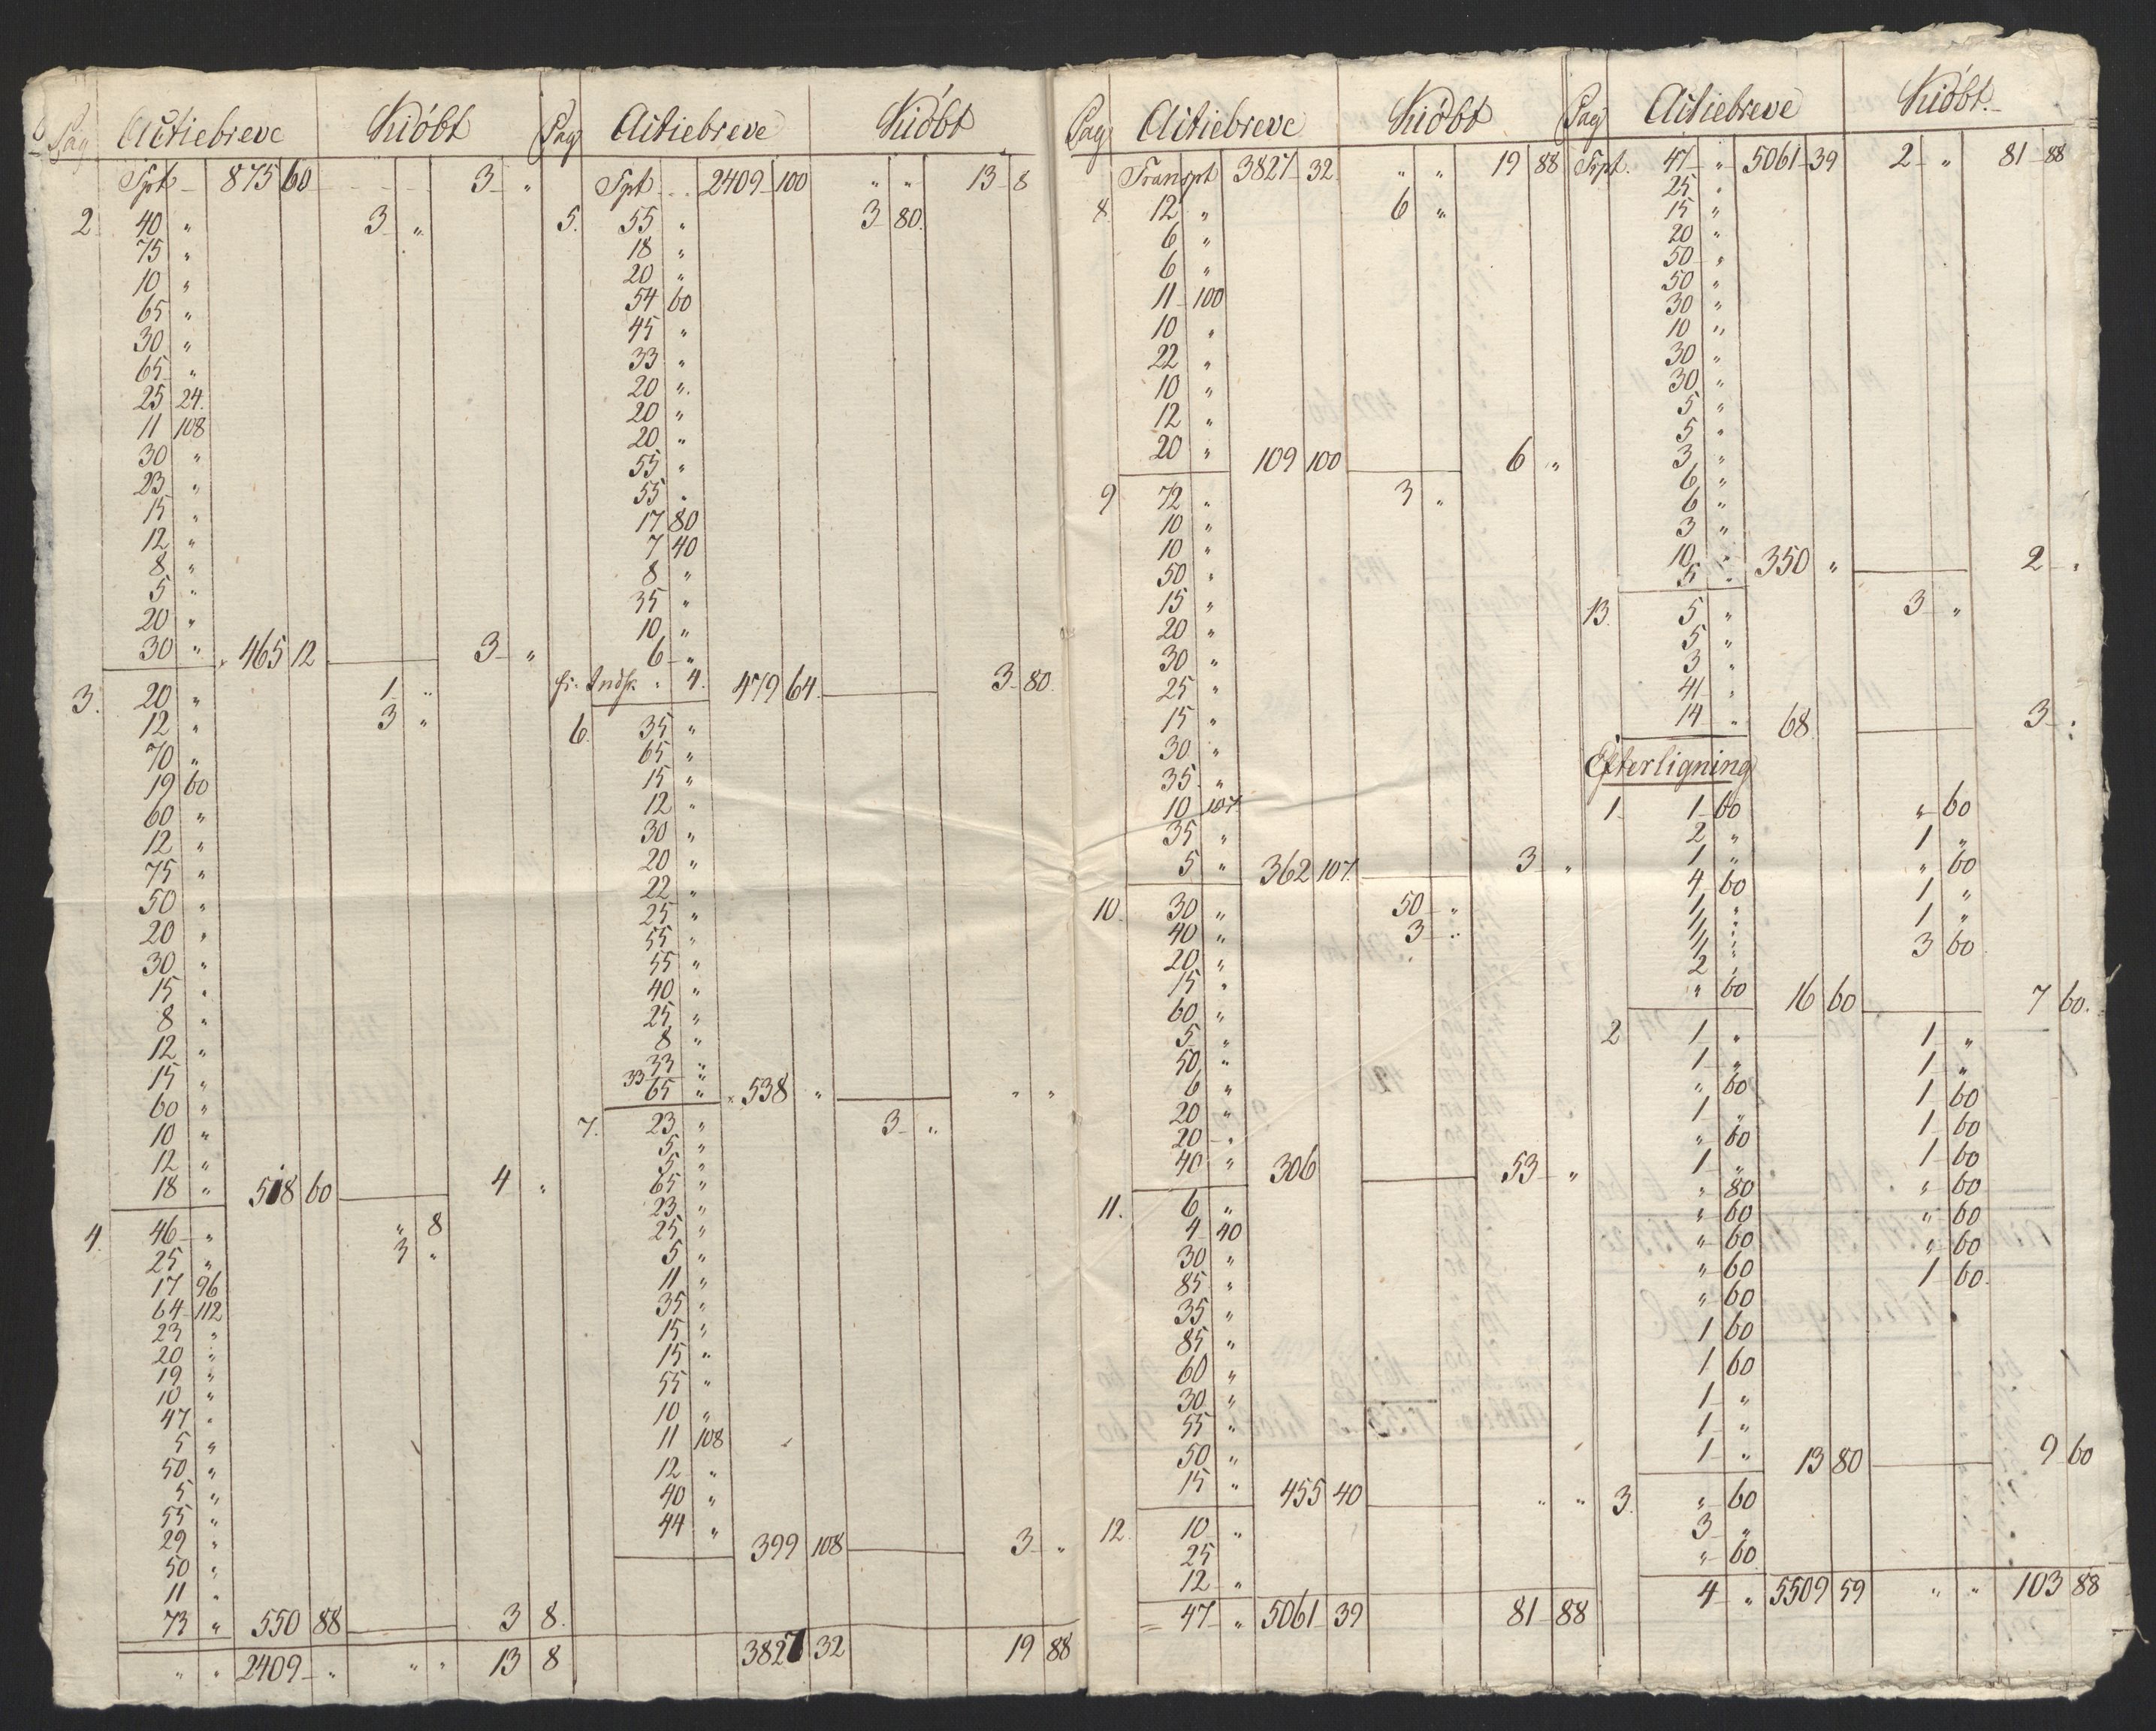 Pag Actiebreve Kióbt
Tpt 875 60 3 "
2. 40 " 3 "
75 "
10 "
65 "
30 "
65 "
25 24.
11 108
30 "
23 "
15 "
12 "
8 "
5 "
20 "
30 " 465 12 3 "
3. 20 " 1 "
12 " 3 "
70 "
19 60
60 "
12 "
75 "
50 "
20 "
30 "
15 "
8 "
12 "
15 "
60 "
10 "
12 "
18 " 518 60 4 "
4. 46 " " 8
25 " 3 "
17 96
64 112
23 "
20 "
19 "
10 "
47 "
5 "
50 "
5 "
55 "
29 "
50 "
11 "
73 " 550 88 3 8.
" " 2409 " " " 13 8
Pag Actiebreve Kióbt
Tpt 2409 100 " " 13 8
5. 55 " 3 80.
18 "
20 "
54 60
45 "
33 "
20 "
20 "
20 "
55 "
55 "
17 80
7 40
8 "
35 "
10 "
6 "
" 4. 479 64. 3 80.
6. 35 "
65 "
15 "
12 "
30 "
20 "
22 "
25 "
55 "
55 "
40 "
25 "
8 "
33 "
33
65 " 538 " " "
7. 23 " 3 "
5 "
5 "
65 "
23 "
25 "
5 "
11 "
35 "
15 "
15 "
55 "
10 "
11 108
12 "
40 "
44 "
399 108 3 "
3827 32 19 88
Pag Actiebreve Kióbt
Transpt 3827 32 " " 19 88
8. 12 " 6 "
6 "
6 "
11 100
10 "
22 "
10 "
12 "
20 " 109 100 6 "
9 72 " 3 "
10 "
10 "
50 "
15 "
20 "
30 "
25 "
15 "
30 "
35 "
10 107
35 "
5 " 362 107. 3 "
10. 30 " 50 "
40 " 3 "
20 "
15 "
60 "
5 "
50 "
6 "
20 "
20 "
40 " 306 53 "
11. 6 "
4 40
30 "
85 "
35 "
85 "
60 "
30 "
55 "
50 "
15 " 455 40 " "
12. 10 "
25
12 "
= 47 " 5061 39 81 88
Pag Actiebreve Kióbt.
Trpt. 47 " 5061 39 2 " 81 88
25 "
15 "
20 "
50 "
50 "
30 "
10 "
30 "
30 "
5 "
5 "
3 "
6 "
6 "
3 "
10 "
5 " 350 " 2 "
13. 5 " 3 "
5 "
3 "
41 "
14 " 68 3 "
Efterligning
1 1 60 " 60
2 " 1 "
1 " " 60
4 60 1 "
1 " 1 "
1 " 3 60
1 "
2 "
" 60 16 60 7 60.
2 1 " 1 "
1 " 1 "
" 60 1 60
1 " 1 60
" 60 1 60
1 " " 60
" 80 " 60
" 60 " 60
" 60 1 60.
" 60
" 60
1 60
1 60
1 "
1 "
1 " 13 80 9 60
3. " 60
3 "
" 60
4 " 5509 59 " " 103 88